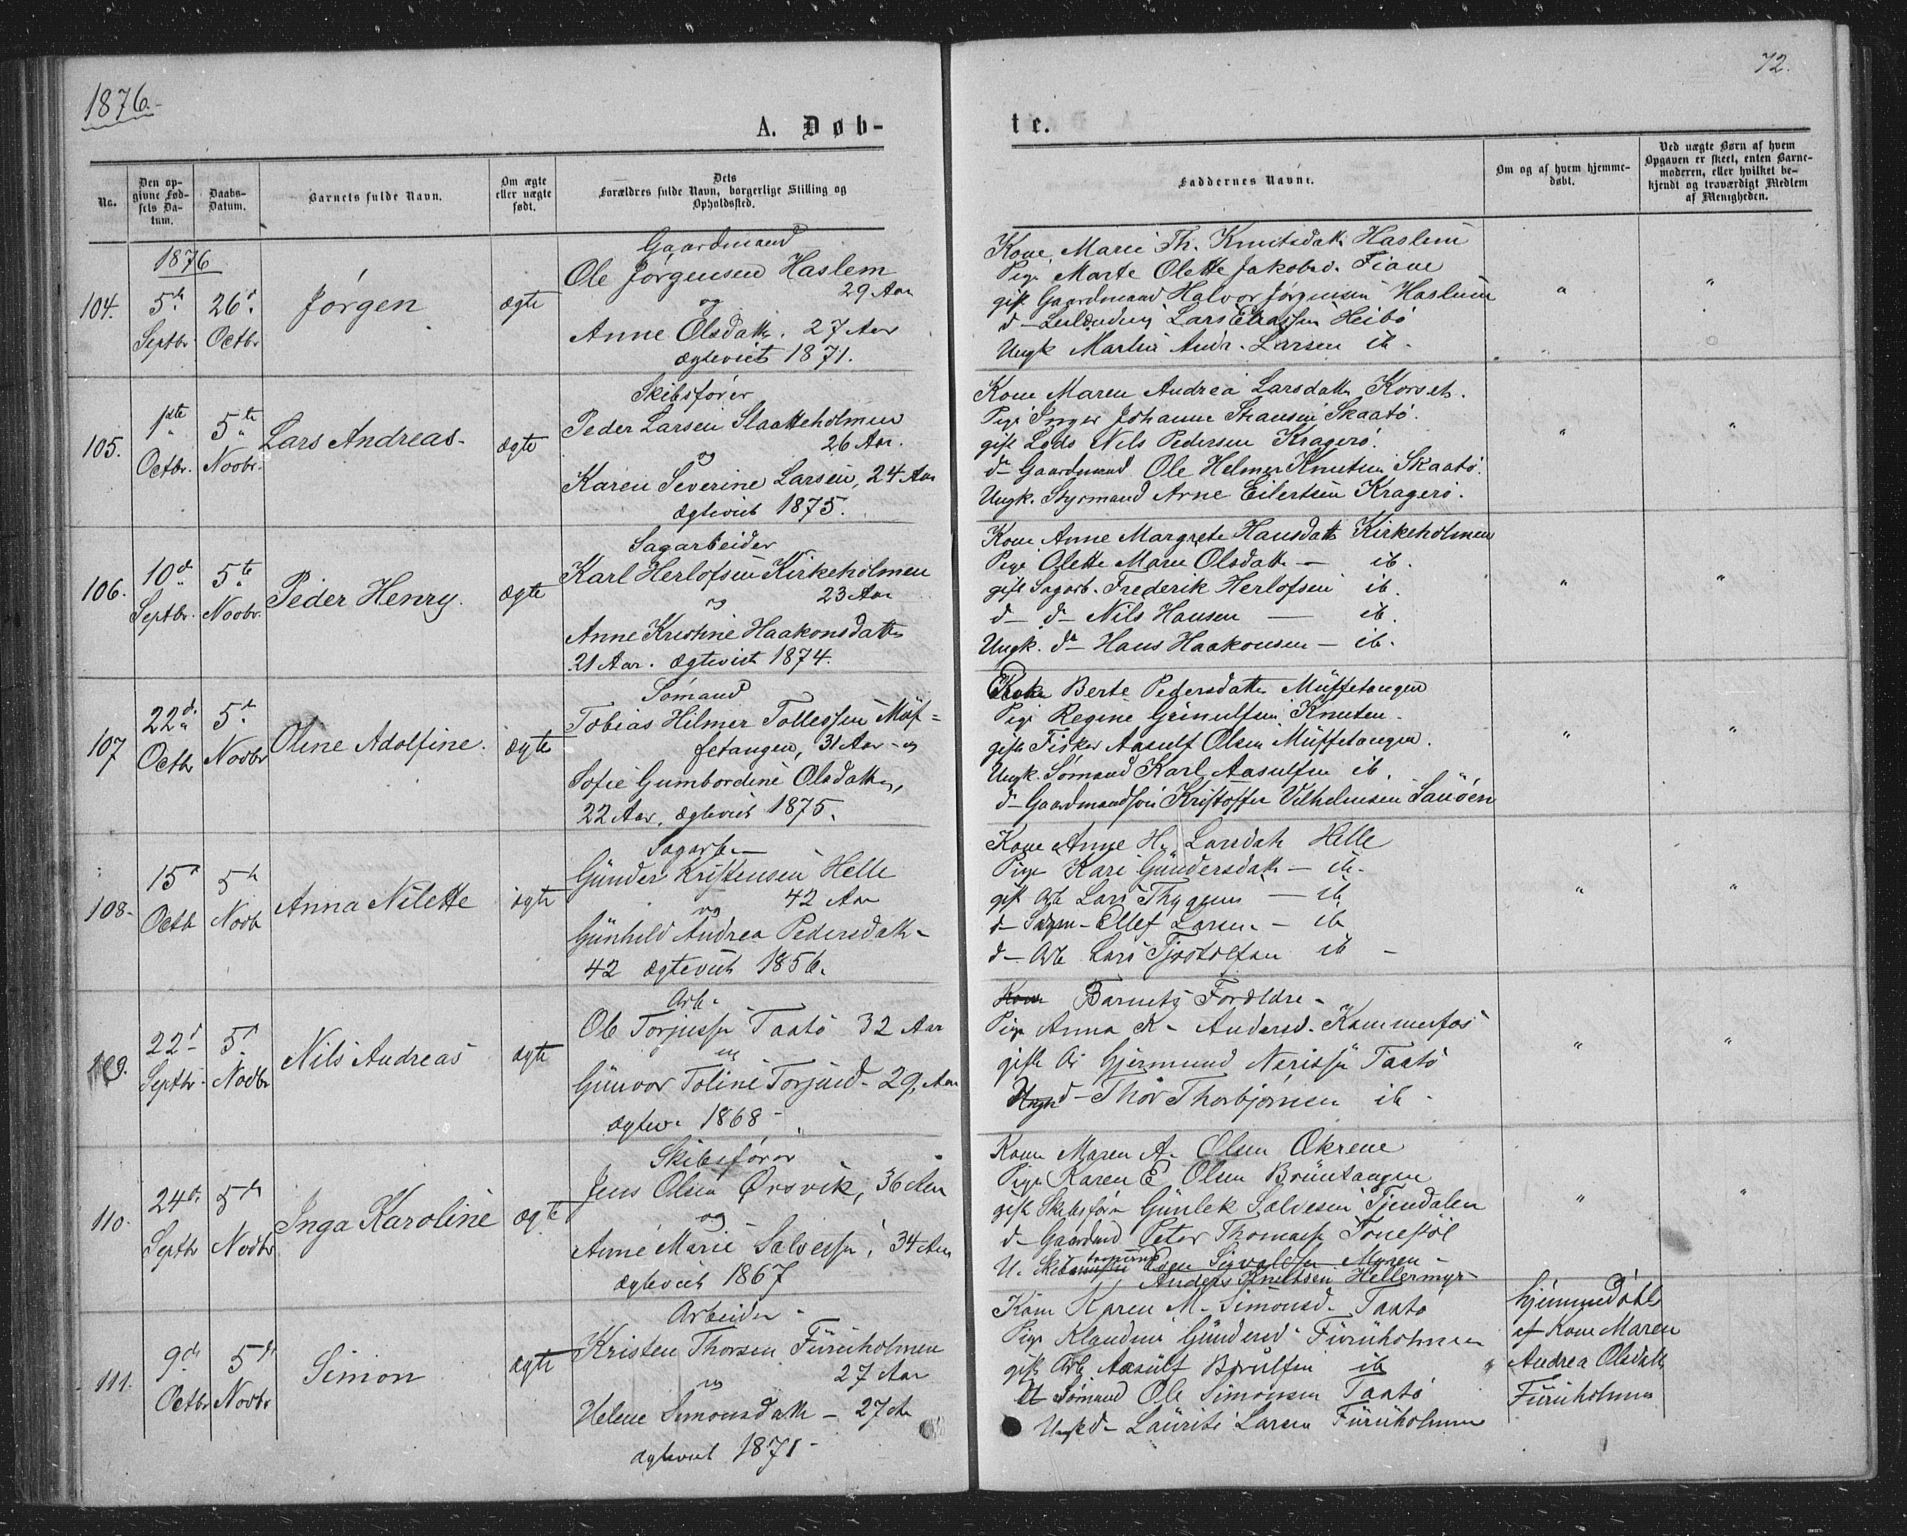 1876.
72.
A. Døb-
te.
No.
Den op-
givne Fød-
sels Da-
tum.
Daabs-
Datum.
Barnets fulde Navn.
Om ægte
eller uægte
født.
Dets
Forældres fulde Navn, borgerlige Stilling og
Opholdssted.
Faddernes Navne.
Om og af hvem hjemme-
døbt.
Ved uægte Børn af hvem
Opgaven er skeet, enten Barne-
moderen, eller hvilket be-
kjendt og troværdigt Medlem
af Menigheden.
1876
104.
5te
Septbr.
26d.
Octbr
Jørgen
ægte
Gaardmand
Ole Jørgensen Haslem
29 Aar
og
Anne Olsdatt. 27 Aar
ægteviet 1871.
Kone Marie Th. Knutsdatt. Haslem
Pige Marte Olette Jakobsd. Fiane
gift Gaardmand Halvor Jørgensen Haslum
d- Lars Eliassen Heibø
Ungk Martin Andr. Larsen ib.
" "
105.
1ste
Octbr.
5te
Novbr.
Lars Andreas-
ægte
Skibsfører
Peder Larsen Slaatteholmen
26 Aar.
og
Karen Severine Larsen, 24 Aar
ægteviet 1875.
Kone Maren Andrea Larsdatt. Korset.
Pige Inger Johanne Skaatø.
gift Lods Nils Pedersen Kragerø.
d- Gaardmand Ole Helmer Knutsen Skaatø.
Ungk. Styrmand Arne Eilertsen Kragerø.
" "
106.
10d
Septbr.
5te
Novbr.
Peder Henry.
ægte
Sagarbeider
Karl Herlofsen Kirkeholmen
23 Aar
og
Anne Kristine Haakonsdatt.
21 Aar. ægteviet 1874.
Kone Anne Margrete Hansdatt Kirkeholmen
Pige Olette Marie Olsdatt - ib.
gift Sagarb. Frederik Herlofsen ib.
d- d- Nils Hansen - ib.
Ungk. d- Hans Haakonsen - ib.
" "
107
22d.
Octbr
5t.
Novbr
Oline Adolfine.
ægte
Sømand
Tobias Hilmer Tollefsen Müf-
fetangen, 31 Aar - og
Sofie Gumbordine Olsdatter,
22 Aar, ægteviet 1875.
Kone Berte Pedersdatter Müffetangen
Pige Regine Knuten.
gift Fisker Aasulf Olsen Müffetangen.
Ungk. Sømand Karl Aasulfsen ib.
d- Gaardmandssøn Kristoffer Vilhelmsen
" "
108-
15d
Octb
5t
Novb
Anna Nilette
ægte
Sagarb.-
Günder Kristensen Helle
42 Aar
og
Günhild Andrea Pedersdatt-
42 ægteviet 1856.
Kone Anne H. Larsdatt Helle
Pige Kari Gündersdatt - ib-
gift Arb Lars Thygesen - ib
d- Sagm- Ellef Larsen - ib
d- Arb Lars Tjostolfsen ib -
" "
109.
22d-
Septbr.
5d
Novbr
Nils Andreas
ægte
Arb.
Ole Torjussen Taatø 32 Aar
og
Günvor Toline Torjusd- 29, Aar
ægtev. 1868-
Kone Barnets Forældre-
Pige Anna K- Andersd. Kammerfos
gift Ar Gjermund Nerissen Taatø
Ungk d- Thor Thorbjørnsen ib -
" "
110.
24d.
Septbr
5te
Novbr
Inga Karoline
ægte
Skibsfører
Jens Olsen Ørsvik, 36 Aar
og
Anne Marie Salvesen, 34 Aar
ægteviet 1867
Kone Maren A- Olsen Økrene
Pige Karen E Olsen Brüntangen
gift Skibsfører Günlek Salvesen Tjendalen
d- Gaardmd Peter Thomasen Tonestøl
U. Myren-
Anders Knutsen Hellermyr-
" "
111.
9de
Octbr
5te
Novbr
Simon
ægte
Arbeider-
Kristen Thorsen Füruholmen
27 Aar
og
Helene Simonsdatt - 27 Aar
ægteviet 1871-
Kone Karen M- Simonsd- Taatø
Pige Klaudine Gündersd. Füruholmen
gift Arb. Aasulf ib
U Sømand Ole Simonsen Taatø
Ungk d- Laurits Larsen Füruholmen
hjemmedøbt
af Kone Maren
Andrea Olsdatt
Füruholmen
"